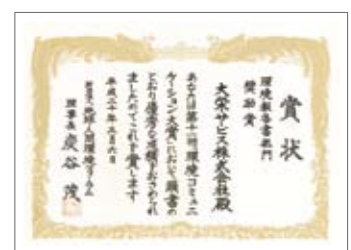 賞状
環境報告書部門
奨励賞
大栄サービス株式会社殿
あなたは第十一回「環境コミュニ
ケーション大賞」において頭書の
とおり優秀なる成績をおさめられ
ましたのでこれを賞します
平成二十年三月六日
財団法人地球・人間環境フォーラム
理事長 炭谷茂